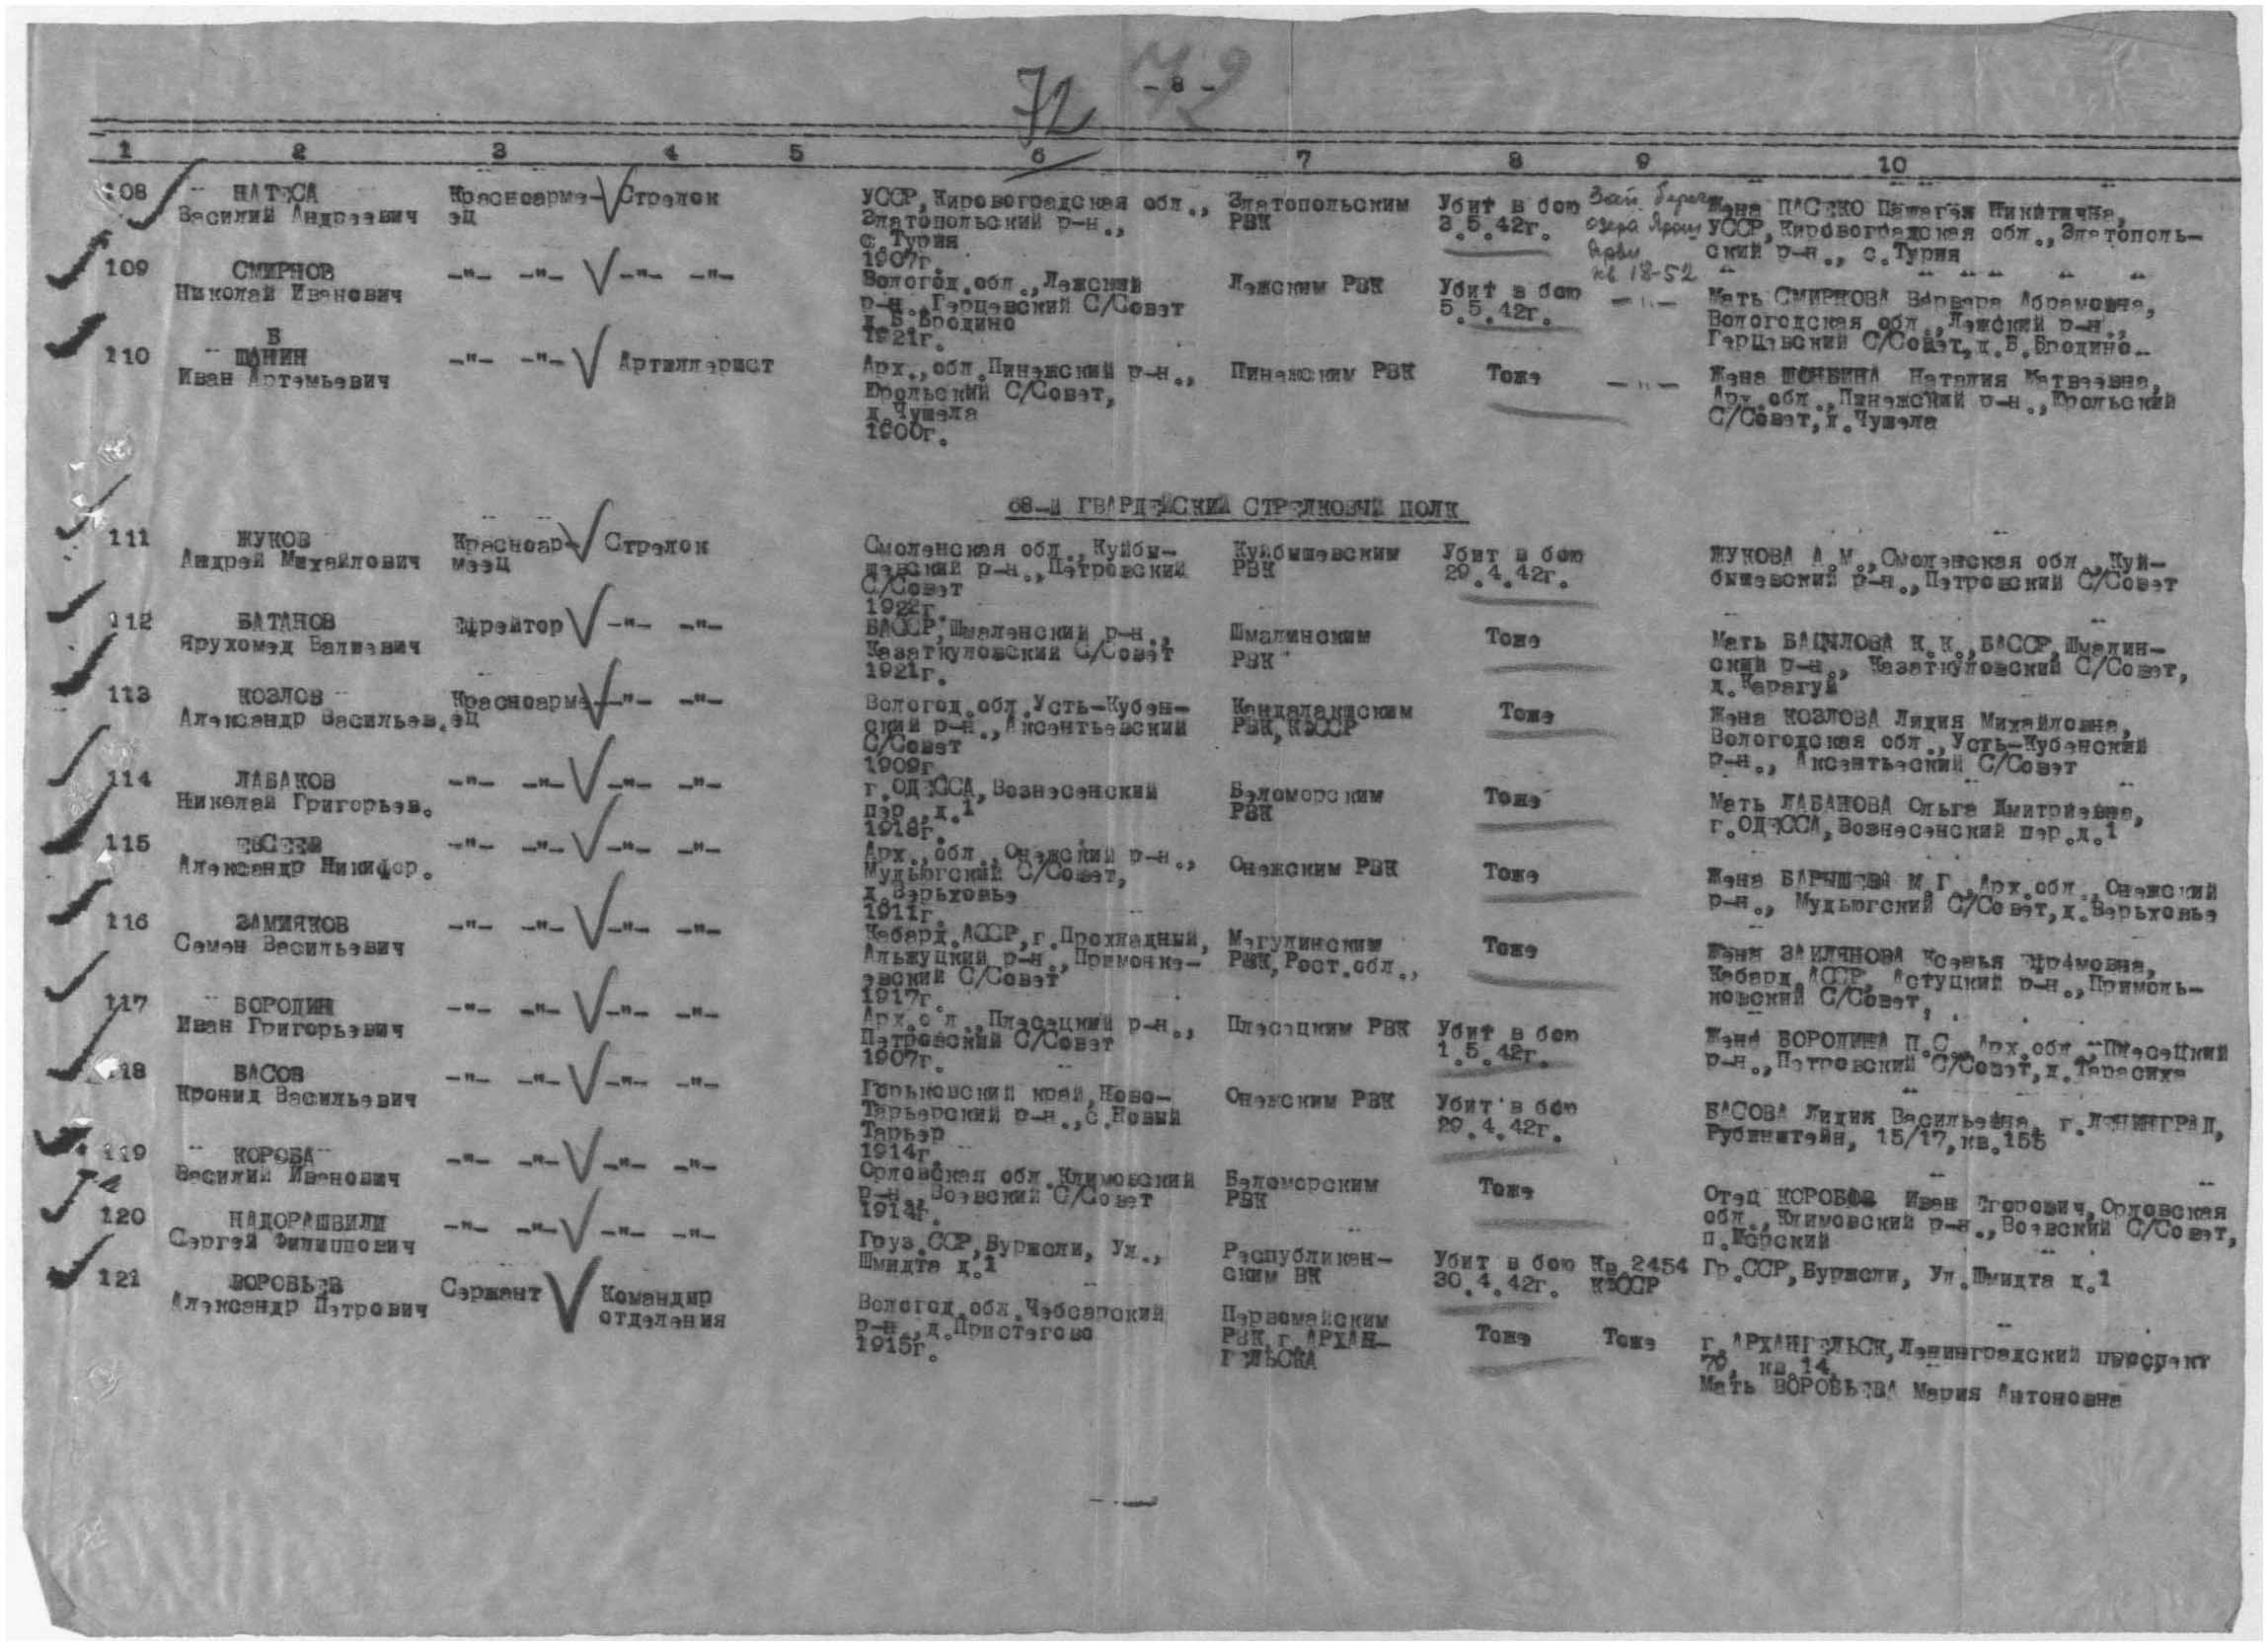 72
- 8 -
1 2 3 4 5 6 7 8 9 10
108 НАТЕСА Красноарме- Стрелок УССР, Кировоградская обл., Златопольским Убит в бою Зап. берег Жена ПАСЕКО Никитична,
Василий Андреевич ец Златопольский р-н., РВК 3.5.42г. озера УССР, Кировоградская обл., Златополь-
с.Турия ский р-н., с.Турия
1907г. кв 18-52
109 СМИРНОВ -"- -"- -"- -"- Вологод.обл., Лежский Лежским РВК Убит в бою -"- Мать СМИРНОВА Варвара Абрамовна,
Николай Иванович р-н., Герцевский С/Совет 5.5.42г. Вологодская обл., Лежский р-н.,
д.Б.Бродино Герцевский С/Совет, д.Б.Бродино
1921г.
Б
110 ШАНИН -"- -"- Артиллерист Арх., обл.Пинежский р-н., Пинежским РВК Тоже -"- Жена Наталия Матвеевна,
Иван Артемьевич Юрольский С/Совет, Арх.обл., Пинежский р-н., Юрольский
д.Чушела С/Совет, д.Чушела
1900г.
68-й ГВАРДЕЙСКИЙ СТРЕЛКОВЫЙ ПОЛК
111 ЖУКОВ Красноар- Стрелок Смоленская обл., Куйбы- Куйбышевским Убит в бою ЖУКОВА А.М., Смоленская обл., Куй-
Андрей Михайлович меец шевский р-н., Петровский РВК 29.4.42г. бышевский р-н., Петровский С/Совет
С/Совет
1922г.
112 БАТАНОВ Ефрейтор -"- -"- БАССР, Шмаленский р-н., Шмалинским Тоже Мать БАЦЫЛОВА К.К., БАССР, Шмалин-
Ярухомед Валиевич Казаткуловский С/Совет РВК ский р-н., Казаткуловский С/Совет,
1921г. д.Карагуй
113 КОЗЛОВ Красноарме- -"- -"- Вологод.обл.Усть-Кубен- Кандалакшским Тоже Жена КОЗЛОВА Лидия Михайловна,
Александр Васильев. ец ский р-н., Аксентьевский РВК, КФССР Вологодская обл., Усть-Кубенский
С/Совет р-н., Аксентьеский С/Совет
1909г
114 ЛАБАКОВ -"- -"- -"- -"- г.ОДЕССА, Вознесенский Беломорским Тоже Мать ЛАБАКОВА Ольга Дмитриевна,
Николай Григорьев. пер., д.1 РВК г.ОДЕССА, Вознесенский пер.д.1
1918г.
115 ЕВСЕЕВ -"- -"- -"- -"- Арх., обл., Онежский р-н., Онежским РВК Тоже Жена БАРЫШЕВА М.Г., Арх.обл., Онежский
Александр Никифор. Мудьюгский С/Совет, р-н., Мудьюгский С/Совет, д.Верьховье
д.Верьховье
1911г.
116 ЗАМИЯКОВ -"- -"- -"- -"- Кабард.АССР, г.Прохладный, Мегулинским Тоже Жена Ксенья,
Семен Васильевич Альжуцкий р-н., РВК, Рост.обл., Кабард.АССР, р-н., Примоль-
евский С/Совет ковский С/Совет,
1917г.
117 БОРОДИН -"- -"- -"- -"- Арх.о л., Плесецкий р-н., Плесецким РВК Убит в бою Жена БОРОДИНА П.С., Арх.обл., Плесецкий
Иван Григорьевич Петровский С/Совет 1.5.42г. р-н., Петровский С/Совет, д.Тарасиха
1907г.
118 БАСОВ -"- -"- -"- -"- Горьковский край, Ново- Онежским РВК Убит в бою БАСОВА Лидия Васильевна, г.ЛЕНИНГРАД,
Кронид Васильевич Тарьерский р-н., с.Новый 29.4.42г. Рубинштейн, 15/17, кв.155
Тарьер
1914г.
119 КОРОБА -"- -"- -"- -"- Орловская обл.Климовский Беломорским Тоже Отец КОРОБОВ Иван Егорович, Орловская
Василий Иванович р-н., Воевский С/Совет РВК обл., Климовский р-н., Воевский С/Совет,
1914г. п.
120 НАДОРАШВИЛИ -"- -"- -"- -"- Груз.ССР, Буржоли, Ул., Республикан- Убит в бою Кв.2454 Гр.ССР, Буржоли, Ул.Шмидта д.1
Сергей Филиппович Шмидта д.1 ским ВК 30.4.42г. КФССР
121 ВОРОБЬЕВ Сержант Командир Вологод.обл.Чебсарский Первомайским Тоже Тоже г.АРХАНГЕЛЬСК, Ленинградский проспект
Александр Петрович отделения р-н., д.Пристегово РВК, г.АРХАН- 79, кв.14.
1915г. ГЕЛЬСКА Мать ВОРОБЬЕВА Мария Антоновна